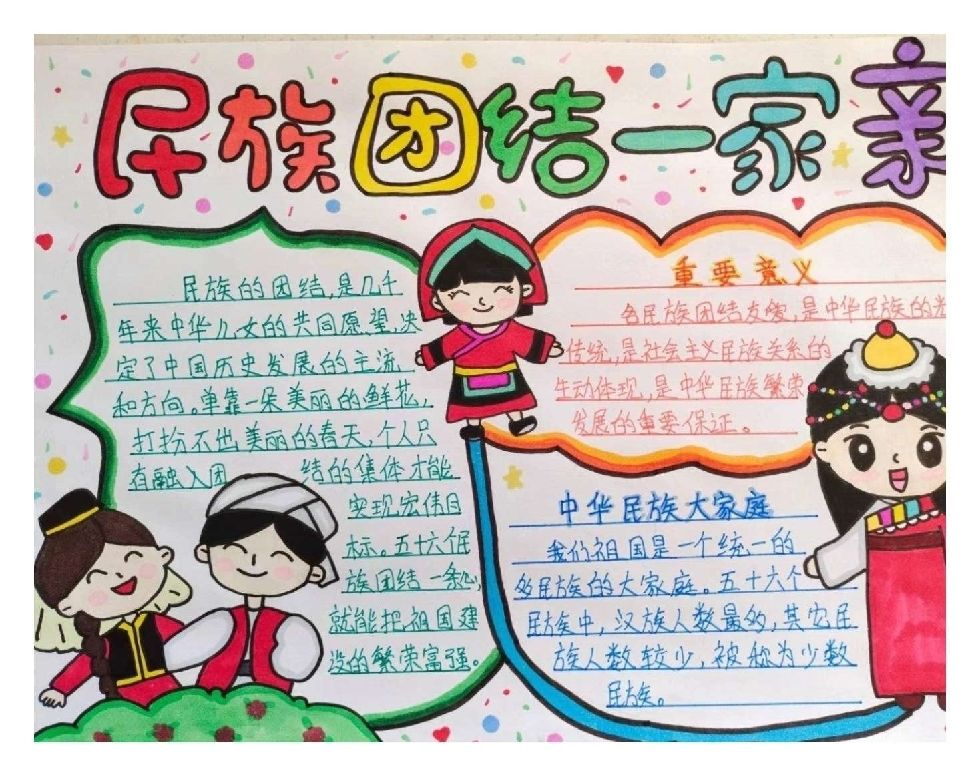 民族团结一家亲
民族的团结,是几千
年来中华儿女的共同愿望,决
定了中国历史发展的主流
和方向。单靠一朵美丽的鲜花,
打扮不出美丽的春天,个人只
有融入团 结的集体才能
实现宏伟目
标。五十六个民
族团结一条心,
就能把祖国建
设的繁荣富强。
重要意义
各民族团结友爱,是中华民族的光
传统,是社会主义民族关系的
生动体现,是中华民族繁荣
发展的重要保证。
中华民族大家庭
我们祖国是一个统一的
多民族的大家庭。五十六个
民族中,汉族人数最多,其它民
族人数较少,被称为少数
民族。